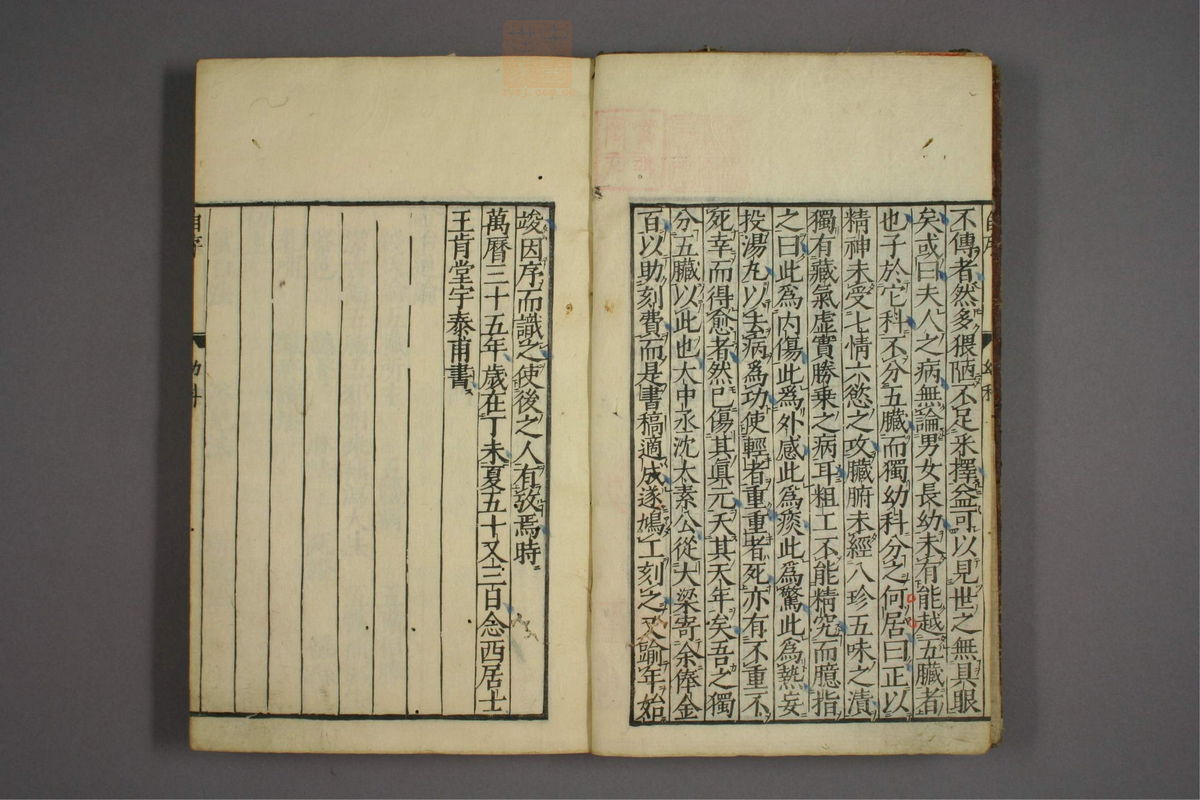 自序
幼科
不傳者然多猥陋不足釆擇益可以見世之無具眼
矣或曰夫人之病無論男女長幼未有能越五臟者
也子於它科不分五臟而獨幼科分之何居曰正以
精神未受七情六慾之攻臟腑未經八珍五味之漬
獨有藏氣虛實勝乗之病耳粗工不能精究而臆指
之曰此爲内傷此爲外感此爲痰此爲驚此爲熱妄
投湯丸以去病爲功使輕者重重者死亦有不重不
死幸而得愈者然已傷其眞元夭其天年矣吾之獨
分五臟以此也大中丞沈太素公從大梁寄余俸金
百以助刻費而是書稿適成遂鳩工刻之又踰年始
竣因序而識之使後之人有攷焉時
萬曆三十五年歲在丁未夏五十又三日念西居士
王肯堂宇泰甫書
自序
幼科